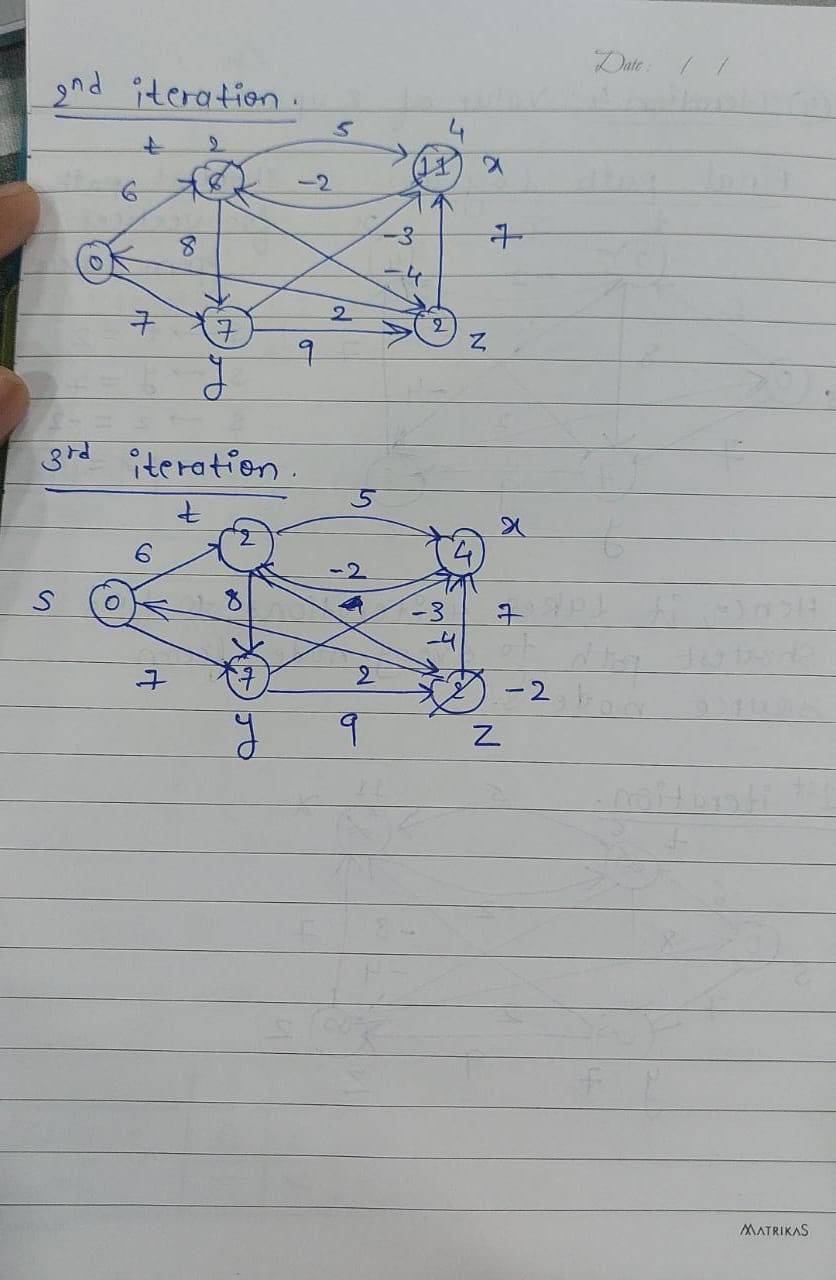 Date: / /
2nd iteration.
t 2 5 4
6 6 -2 11 x
0 8 -3 7
-4
7 7 2 2 z
9
y
3rd iteration.
t 5
6 2 -2 4 x
s 0 8 -3 7
-4
7 7 2 2 -2
y 9 z
MATRIKAS